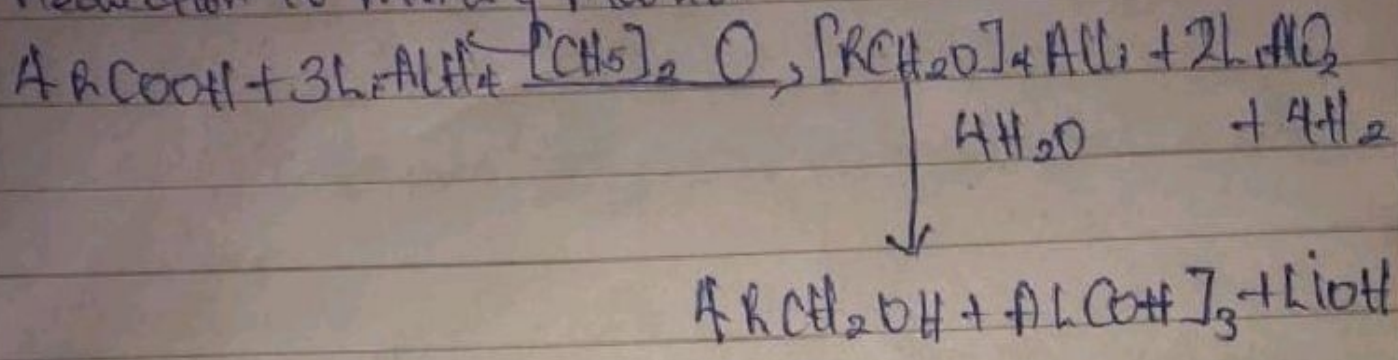 4RCOOH + 3LiAlH4 [CH5]2 O, [RCH2O]4 AlLi + 2LiAlO2
4H2O + 4H2
4RCH2OH + AL(OH]3 + LiOH